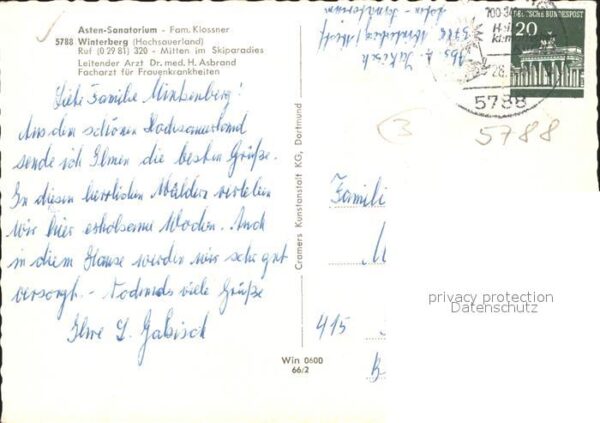 Asten-Sanatorium - Fam. Klossner
5788 Winterberg (Hochsauerland)
Ruf (0 29 81) 320 - Mitten im Skiparadies
Leitender Arzt Dr. med. H. Asbrand
Facharzt für Frauenkrankheiten
Liebe Familie
Aus dem schönen Hochsauerland
sende ich Ihnen die besten Grüße.
In diesen herrlichen Wäldern verleben
wir hier erholsame Wochen. Auch
in diesem Hause werden wir sehr gut
versorgt. - Nochmals viele Grüße
Ihre
Cramers Kunstanstalt KG, Dortmund
Win 0600
66/2
Abs.
5788 Winterberg
DEUTSCHE BUNDESPOST
20
5788
3
5788
Famili
415
privacy protection
Datenschutz